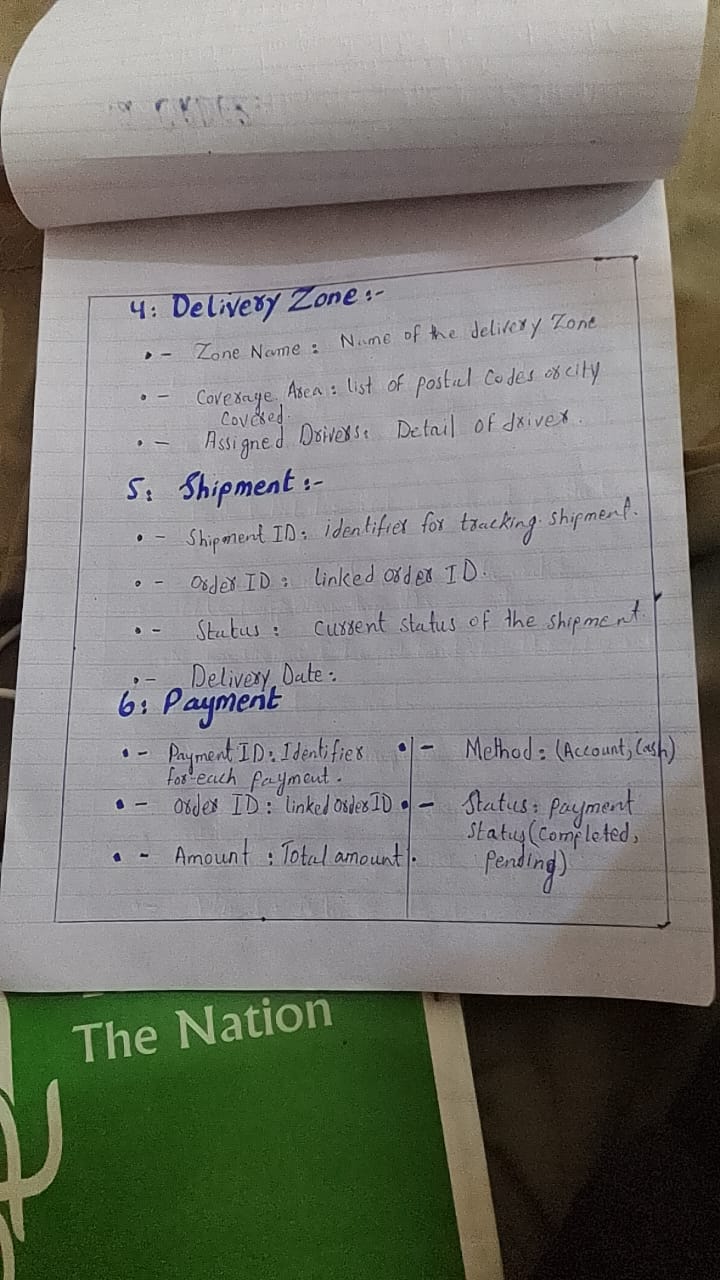 4: Delivery Zone :-
• - Zone Name : Name of the delivery Zone
• - Coverage Area : list of postal Codes or city
Covered.
• - Assigned Drivers: Detail of driver.
5: Shipment :-
• - Shipment ID: identifier for tracking shipment.
• - Order ID : linked order ID.
• - Status : current status of the shipment.
• - Delivery Date :
6: Payment
• - Payment ID: Identifier
for each payment.
• - Order ID : linked Order ID
• - Amount : Total amount.
• - Method : (Account, Cash)
• - Status : payment
status (completed,
pending)
The Nation